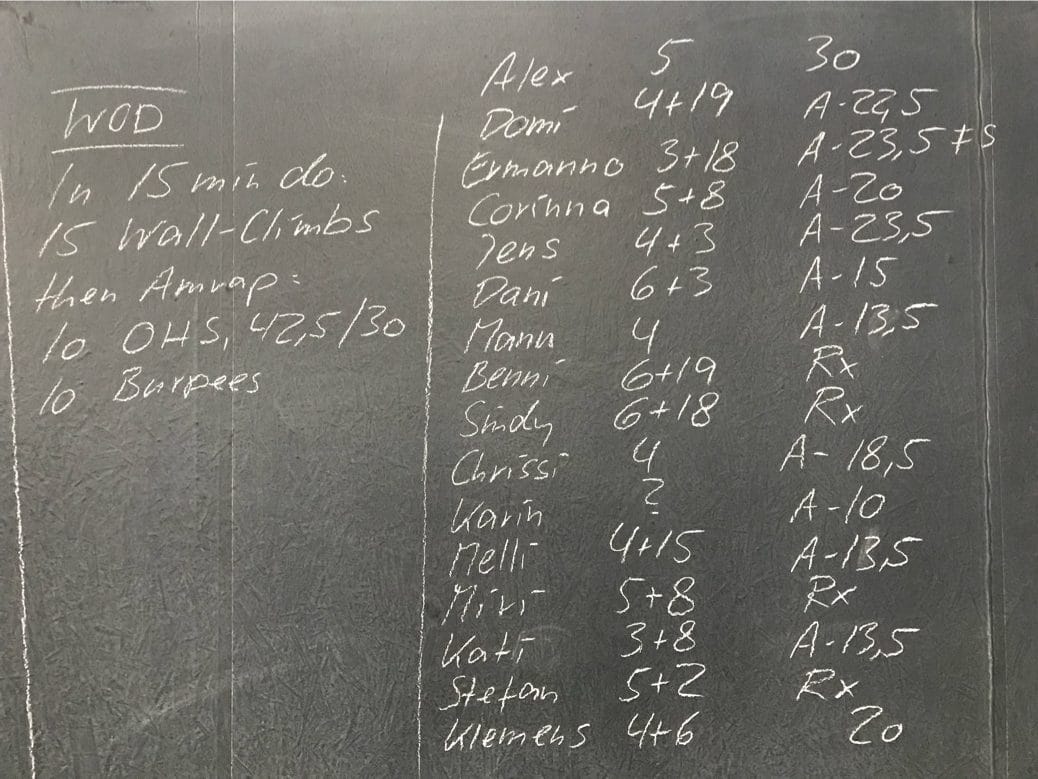 WOD
In 15 min do:
15 Wall-Climbs
then Amrap:
10 OHS, 42,5/30
10 Burpees
Alex 5 30
Domi 4+19 A-22,5
Ermanno 3+18 A-23,5 FS
Corinna 5+8 A-20
Jens 4+3 A-23,5
Dani 6+3 A-15
Manu 4 A-13,5
Benni 6+19 Rx
Sindy 6+18 Rx
Chrissi 4 A-18,5
Karin ? A-10
Melli 4+15 A-13,5
Miri 5+8 Rx
Kati 3+8 A-13,5
Stefan 5+2 Rx
Klemens 4+6 20